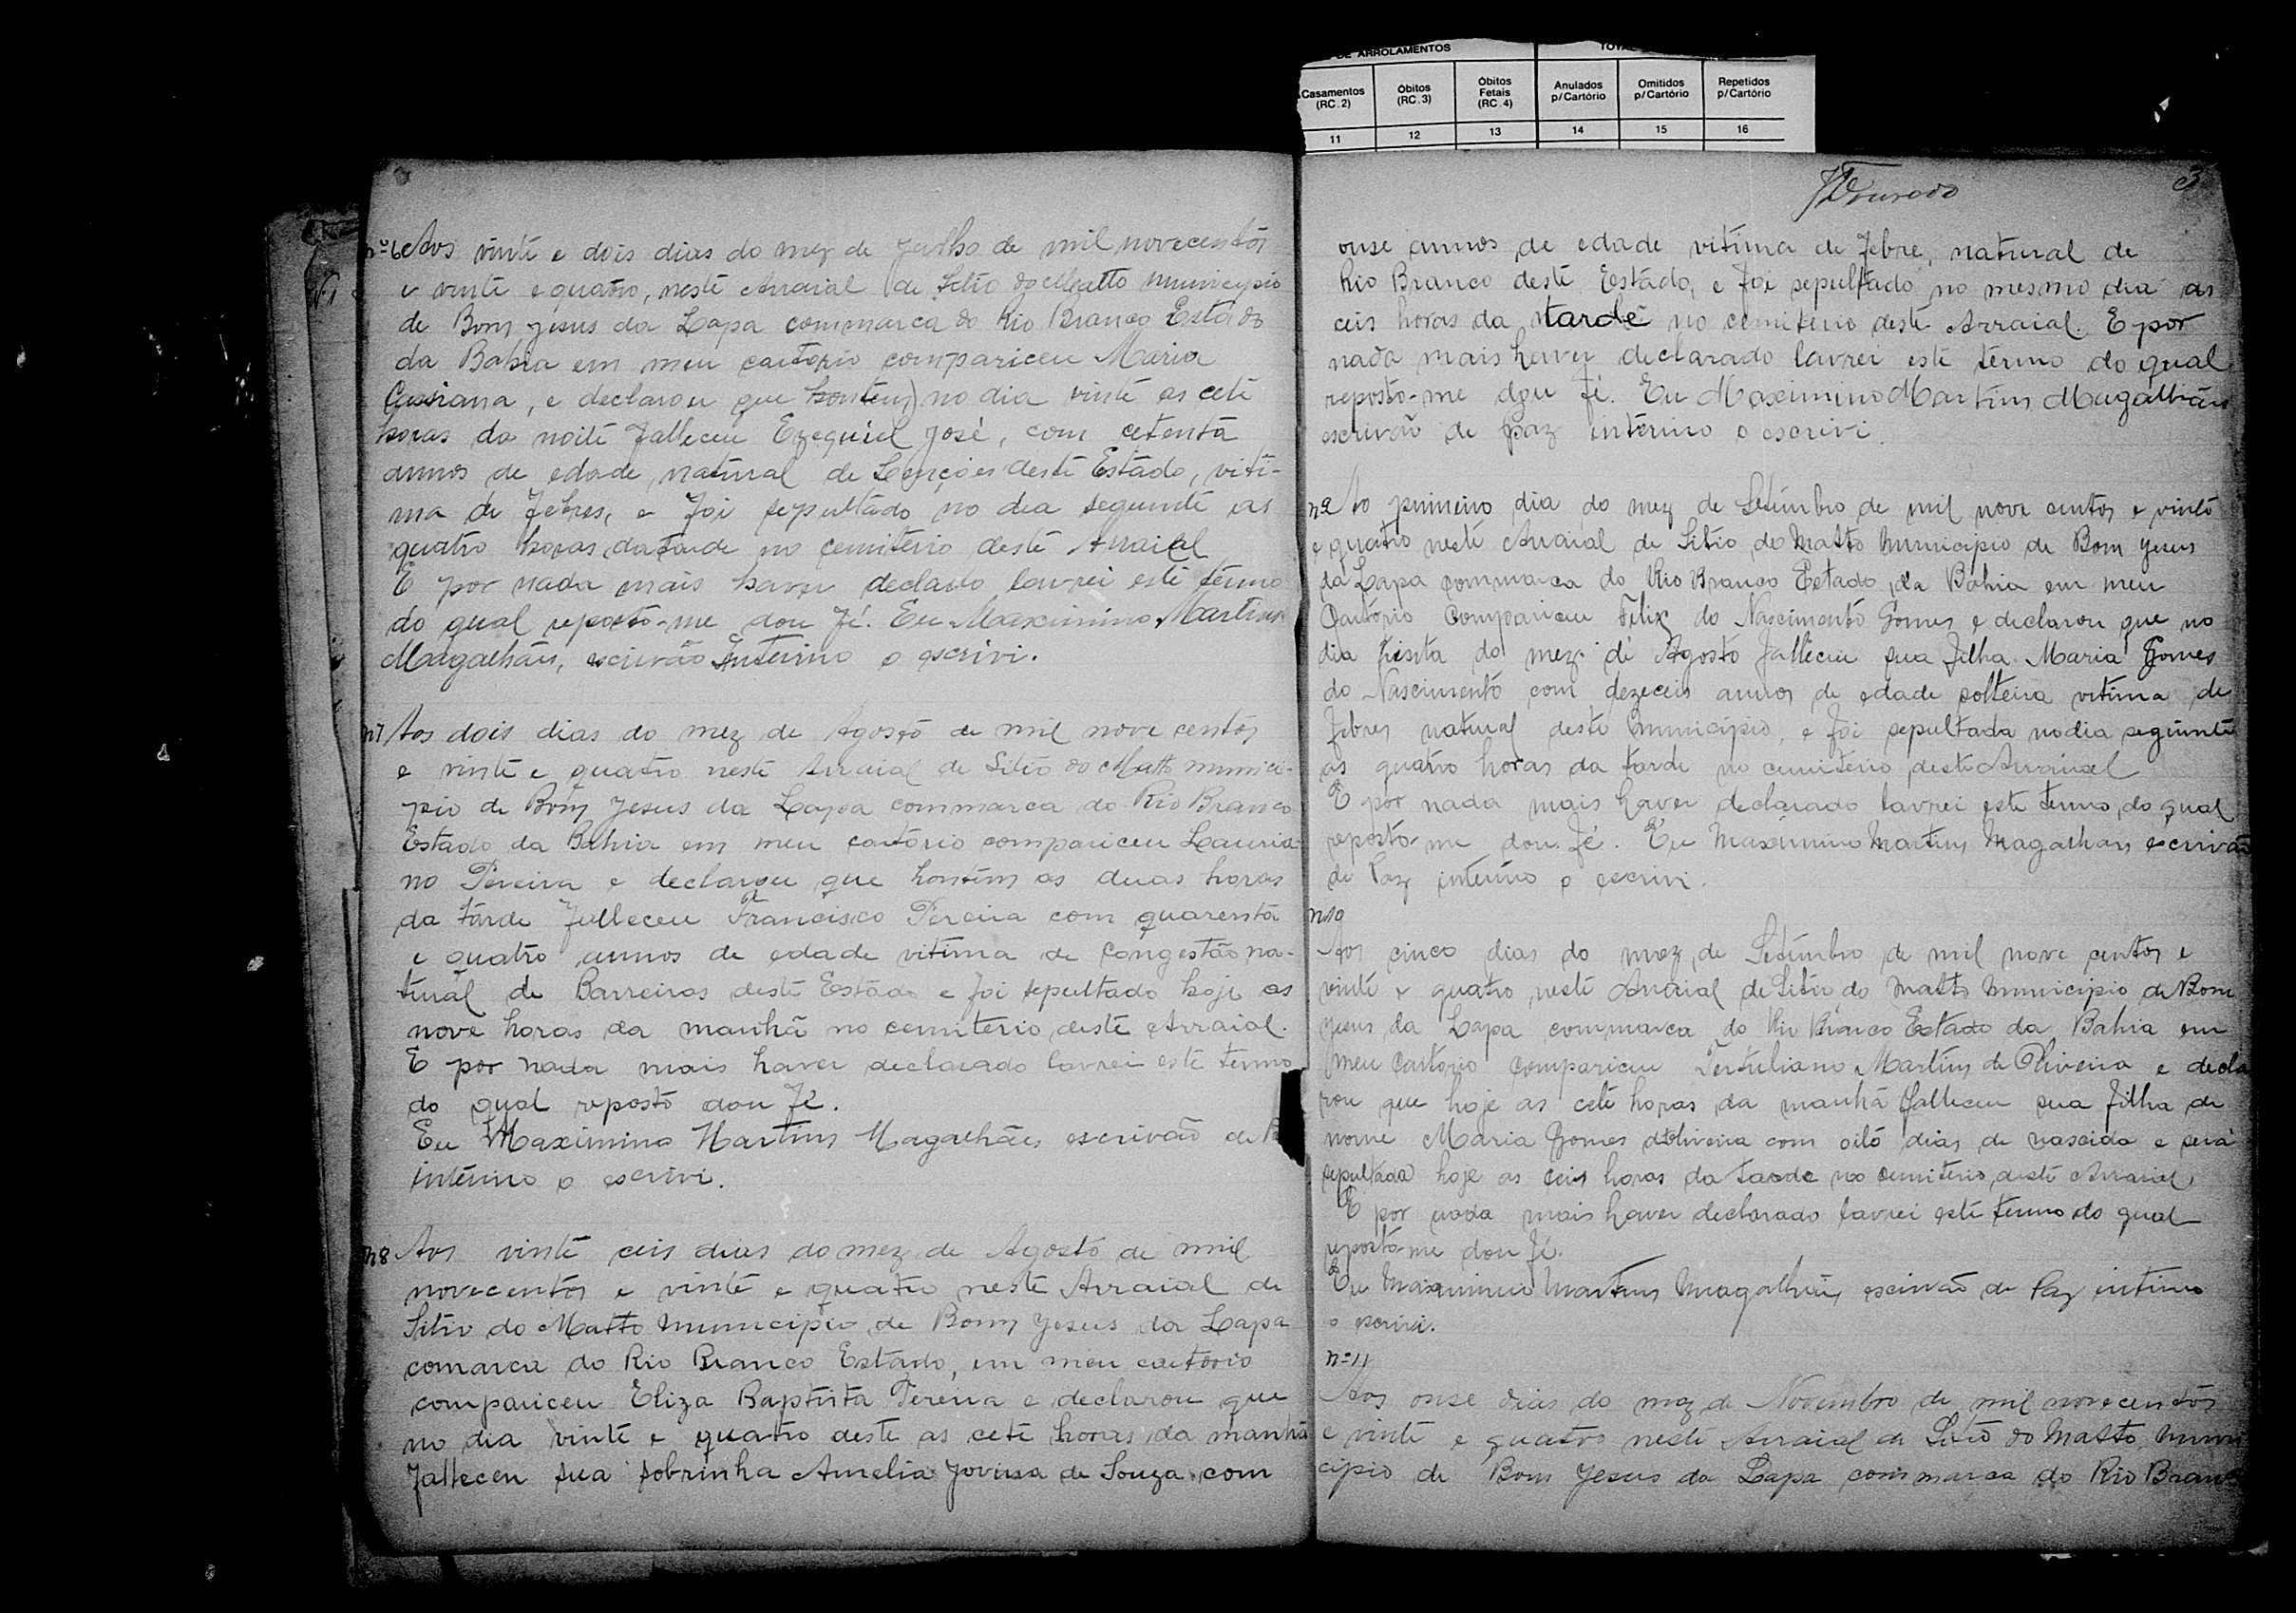 DE ARROLAMENTOS
Casamentos (RC.2) Óbitos (RC.3) Óbitos Fetais (RC.4) Anulados p/Cartório Omitidos p/Cartório Repetidos p/Cartório
11 12 13 14 15 16
nº 6 Aos vinte e dois dias do mez de Julho de mil novecentos
e vinte e quatro, neste Arraial de Sitio do Matto municipio
de Bom Jesus da Lapa commarca do Rio Branco Estado
da Bahia em meu cartorio compariceu Maria
, e declarou que hontem) no dia vinte as cete
horas da noite falleceu Ezequiel José, com cetenta
annos de edade, natural de Lençoes deste Estado, viti-
ma de febres, e foi sepultado no dia seguinte as
quatro horas da tarde no cemiterio deste Arraial
E por nada mais haver declado lavrei este termo
do qual reposto-me dou fé. Eu Maximino Martins
Magalhães, escrivão interino o escrivi.
n7 Aos dois dias do mez de Agosto de mil nove centos
e vinte e quatro neste Arraial de Sitio do Matto munici-
pio de Bom Jesus da Lapa commarca do Rio Branco
Estado da Bahia em meu cartorio compariceu Lauria-
no Pereira e declarou que hontem as duas horas
da tarde falleceu Francisco Pereira com quarenta
e quatro annos de edade vitima de congestão na-
tural de Barreiras deste Estado e foi sepultado hoje as
nove horas da manhã no cemiterio deste Arraial.
E por nada mais haver declarado lavrei este termo
do qual reposto dou fé.
Eu Maximino Martins Magalhães escrivão de
interino o escrivi.
n8 Aos vinte ceis dias do mez de Agosto de mil
novecentos e vinte e quatro neste Arraial de
Sitio do Matto Municipio de Bom Jesus da Lapa
comarca do Rio Branco Estado, em meu cartorio
compariceu Eliza Baptista Pereira e declarou que
no dia vinte e quatro deste as cete horas da manhã
falleceu sua sobrinha Amelia Jovina de Souza com
3
onse annos de edade vitima de febre, natural de
Rio Branco deste Estado, e foi sepultado no mesmo dia as
ceis horas da tarde no cemiterio deste Arraial. E por
nada mais haver declarado lavrei este termo do qual
reposto-me dou fé. Eu Maximino Martins Magalhães
escrivão de paz interino o escrivi.
n9 Ao primeiro dia do mez de Setembro de mil nove centos e vinte
e quatro neste Arraial de Sitio do Matto Municipio de Bom Jesus
da Lapa commarca do Rio Branco Estado da Bahia em meu
Cartorio Compariceu Felix do Nascimento Gomes e declarou que no
dia trista do mez de Agosto falleceu sua filha Maria Gomes
do Nascimento com dezeceis annos de edade solteira vitima de
febres natural deste Municipio, e foi sepultada no dia seguinte
as quatro horas da tarde no cemiterio deste Arraial
E por nada mais haver declarado lavrei este termo, do qual
reposto me dou fé. Eu Maximino Martins Magalhães escrivão
de Paz interino o escrivi.
n10
Aos cinco dias do mez de Setembro de mil nove centos e
vinte e quatro neste Arraial de Sitio do Matto Municipio de Bom
Jesus da Lapa commarca do Rio Branco Estado da Bahia em
meu cartorio compariceu Tertuliano Martins de Oliveira e decla
rou que hoje as cete horas da manhã falleceu sua filha de
nome Maria Gomes d'Oliveira com oito dias de nascida e será
sepultada hoje as ceis horas da tarde no cemiterio deste Arraial
E por nada mais haver declarado lavrei este termo do qual
reposto me dou fé.
Eu Maximino Martins Magalhães escrivão de Paz interino
o escrivi.
nº 11
Aos onse dias do mez de Novembro de mil novecentos
e vinte e quatro neste Arraial de Sitio do Matto, Muni
cipio de Bom Jesus da Lapa commarca do Rio Branco